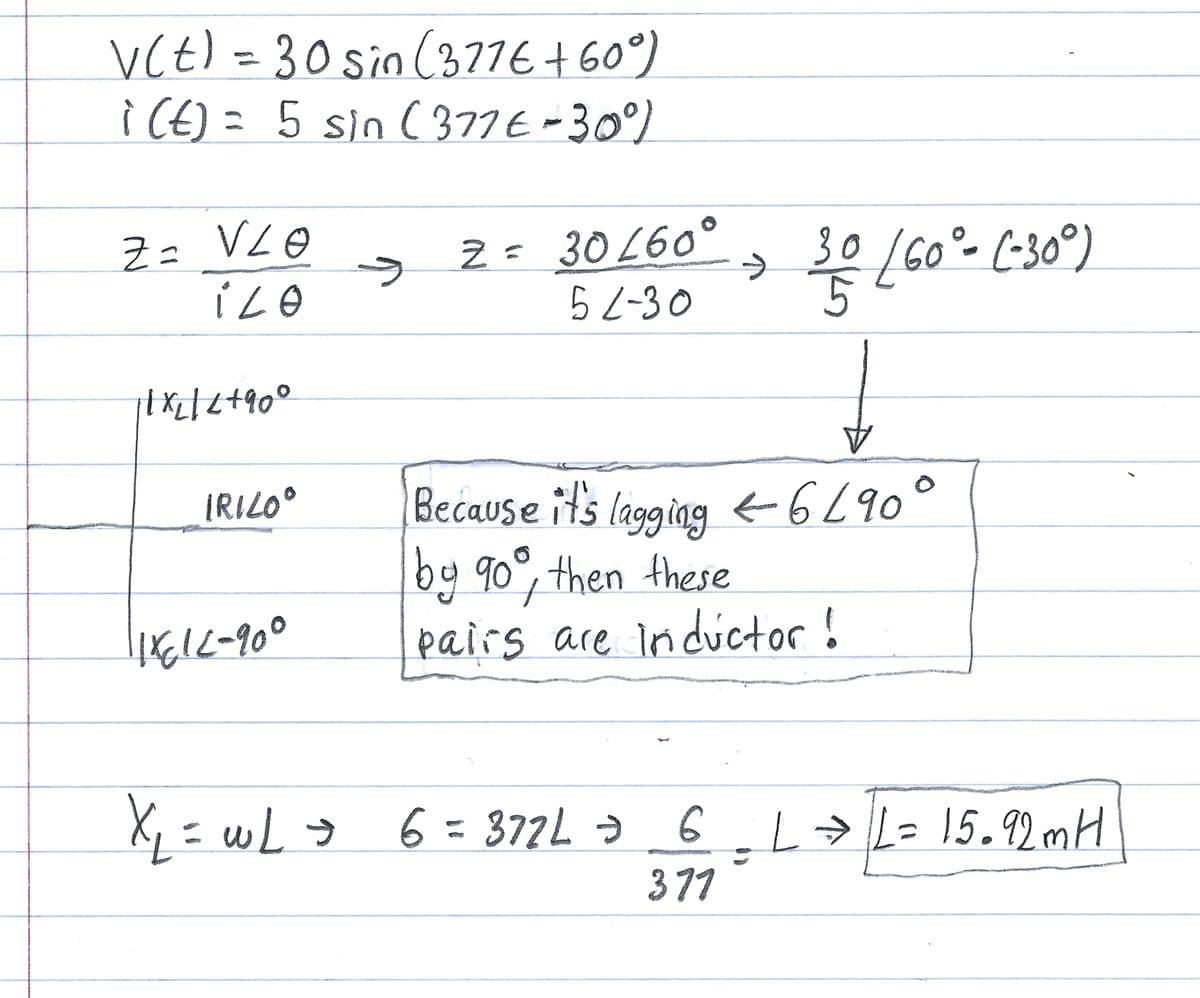 V(t) = 30 sin (377t + 60°)
i(t) = 5 sin (377t - 30°)
Z = V∠θ / i∠θ → Z = 30∠60° / 5∠-30 → 30/5 ∠60° - (-30°)
|X_L|∠+90°
|R|∠0°
Because it's lagging ← 6∠90°
by 90°, then these
pairs are inductor!
|X_C|∠-90°
X_L = ωL → 6 = 377L → 6/377 = L → L = 15.92 mH